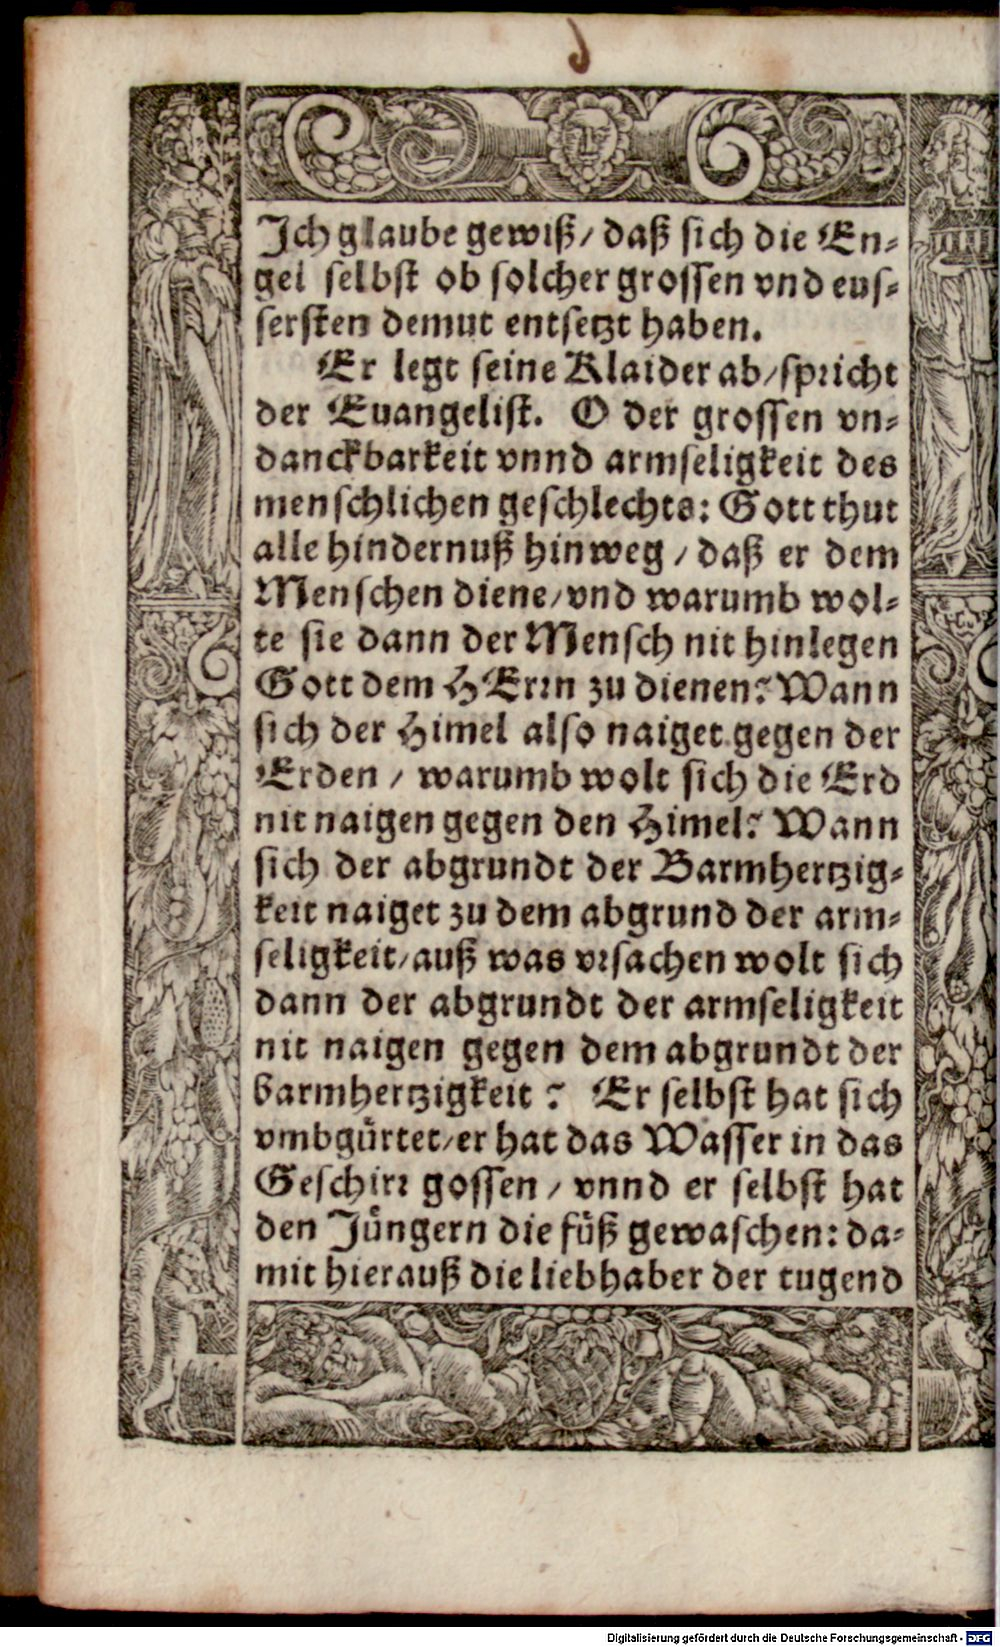 Ich glaube gewiß/ daß sich die En-
gel selbst ob solcher grossen vnd eus-
sersten demut entsetzt haben.
Er legt seine Klaider ab/ spricht
der Euangelist. O der grossen vn-
danckbarkeit vnnd armseligkeit des
menschlichen geschlechts: Gott thut
alle hindernuß hinweg / daß er dem
Menschen diene/ vnd warumb wol-
te sie dann der Mensch nit hinlegen
Gott dem HErrn zu dienen? Wann
sich der Himel also naiget gegen der
Erden / warumb wolt sich die Erd
nit naigen gegen den Himel? Wann
sich der abgrundt der Barmhertzig-
keit naiget zu dem abgrund der arm-
seligkeit/ auß was vrsachen wolt sich
dann der abgrundt der armseligkeit
nit naigen gegen dem abgrundt der
barmhertzigkeit? Er selbst hat sich
vmbgürtet/ er hat das Wasser in das
Geschirr gossen / vnnd er selbst hat
den Jüngern die füß gewaschen: da-
mit hierauß die liebhaber der tugend
Digitalisierung gefördert durch die Deutsche Forschungsgemeinschaft - DFG